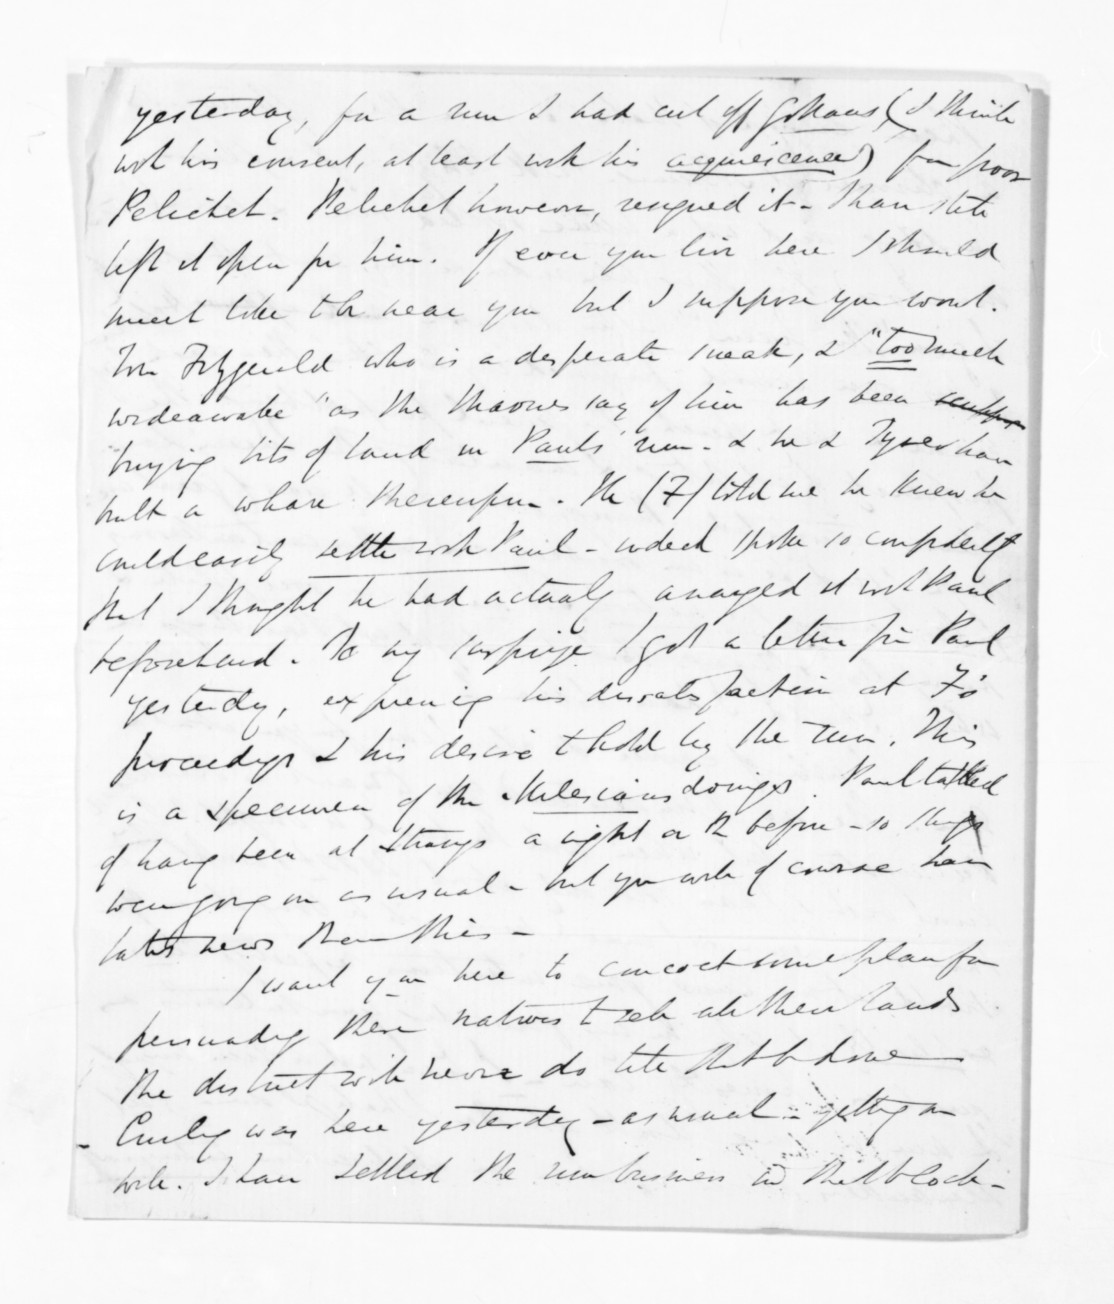 yesterday, for a run I had cut off Gollans, (I think
with his consent, at least with his acquiescence) for poor
Pelichet. Pelichet however, resigned it - I have still
left it open for him. If ever you live here I should
much like to be near you but I suppose you wont.
Tom Fitzgerald who is a desperate sneak, & "too much
wideawake" as the Maories say of him has been
buying bits of land in Pauls run - & he & Tyser have
built a whare thereupon. He (F) told me he knew he
could easily settle with Paul - indeed spoke so confidently
that I thought he had actually arranged it with Paul
beforehand. To my surprize I got a letter fm Paul
yesterday, expressing his dissatisfaction at F's
proceedings & his desire to hold by the run. This
is a specimen of the Milesians doings. Paul talked
of having been at Strangs a night or 2 before - so things
were going on as usual - but you will of course have
later news than this -
I want you here to concoct some plan for
persuading these natives to sell all their lands
the district will never do till that be done
Curling was here yesterday - as usual - getting on
well. I have settled the run business in that block -